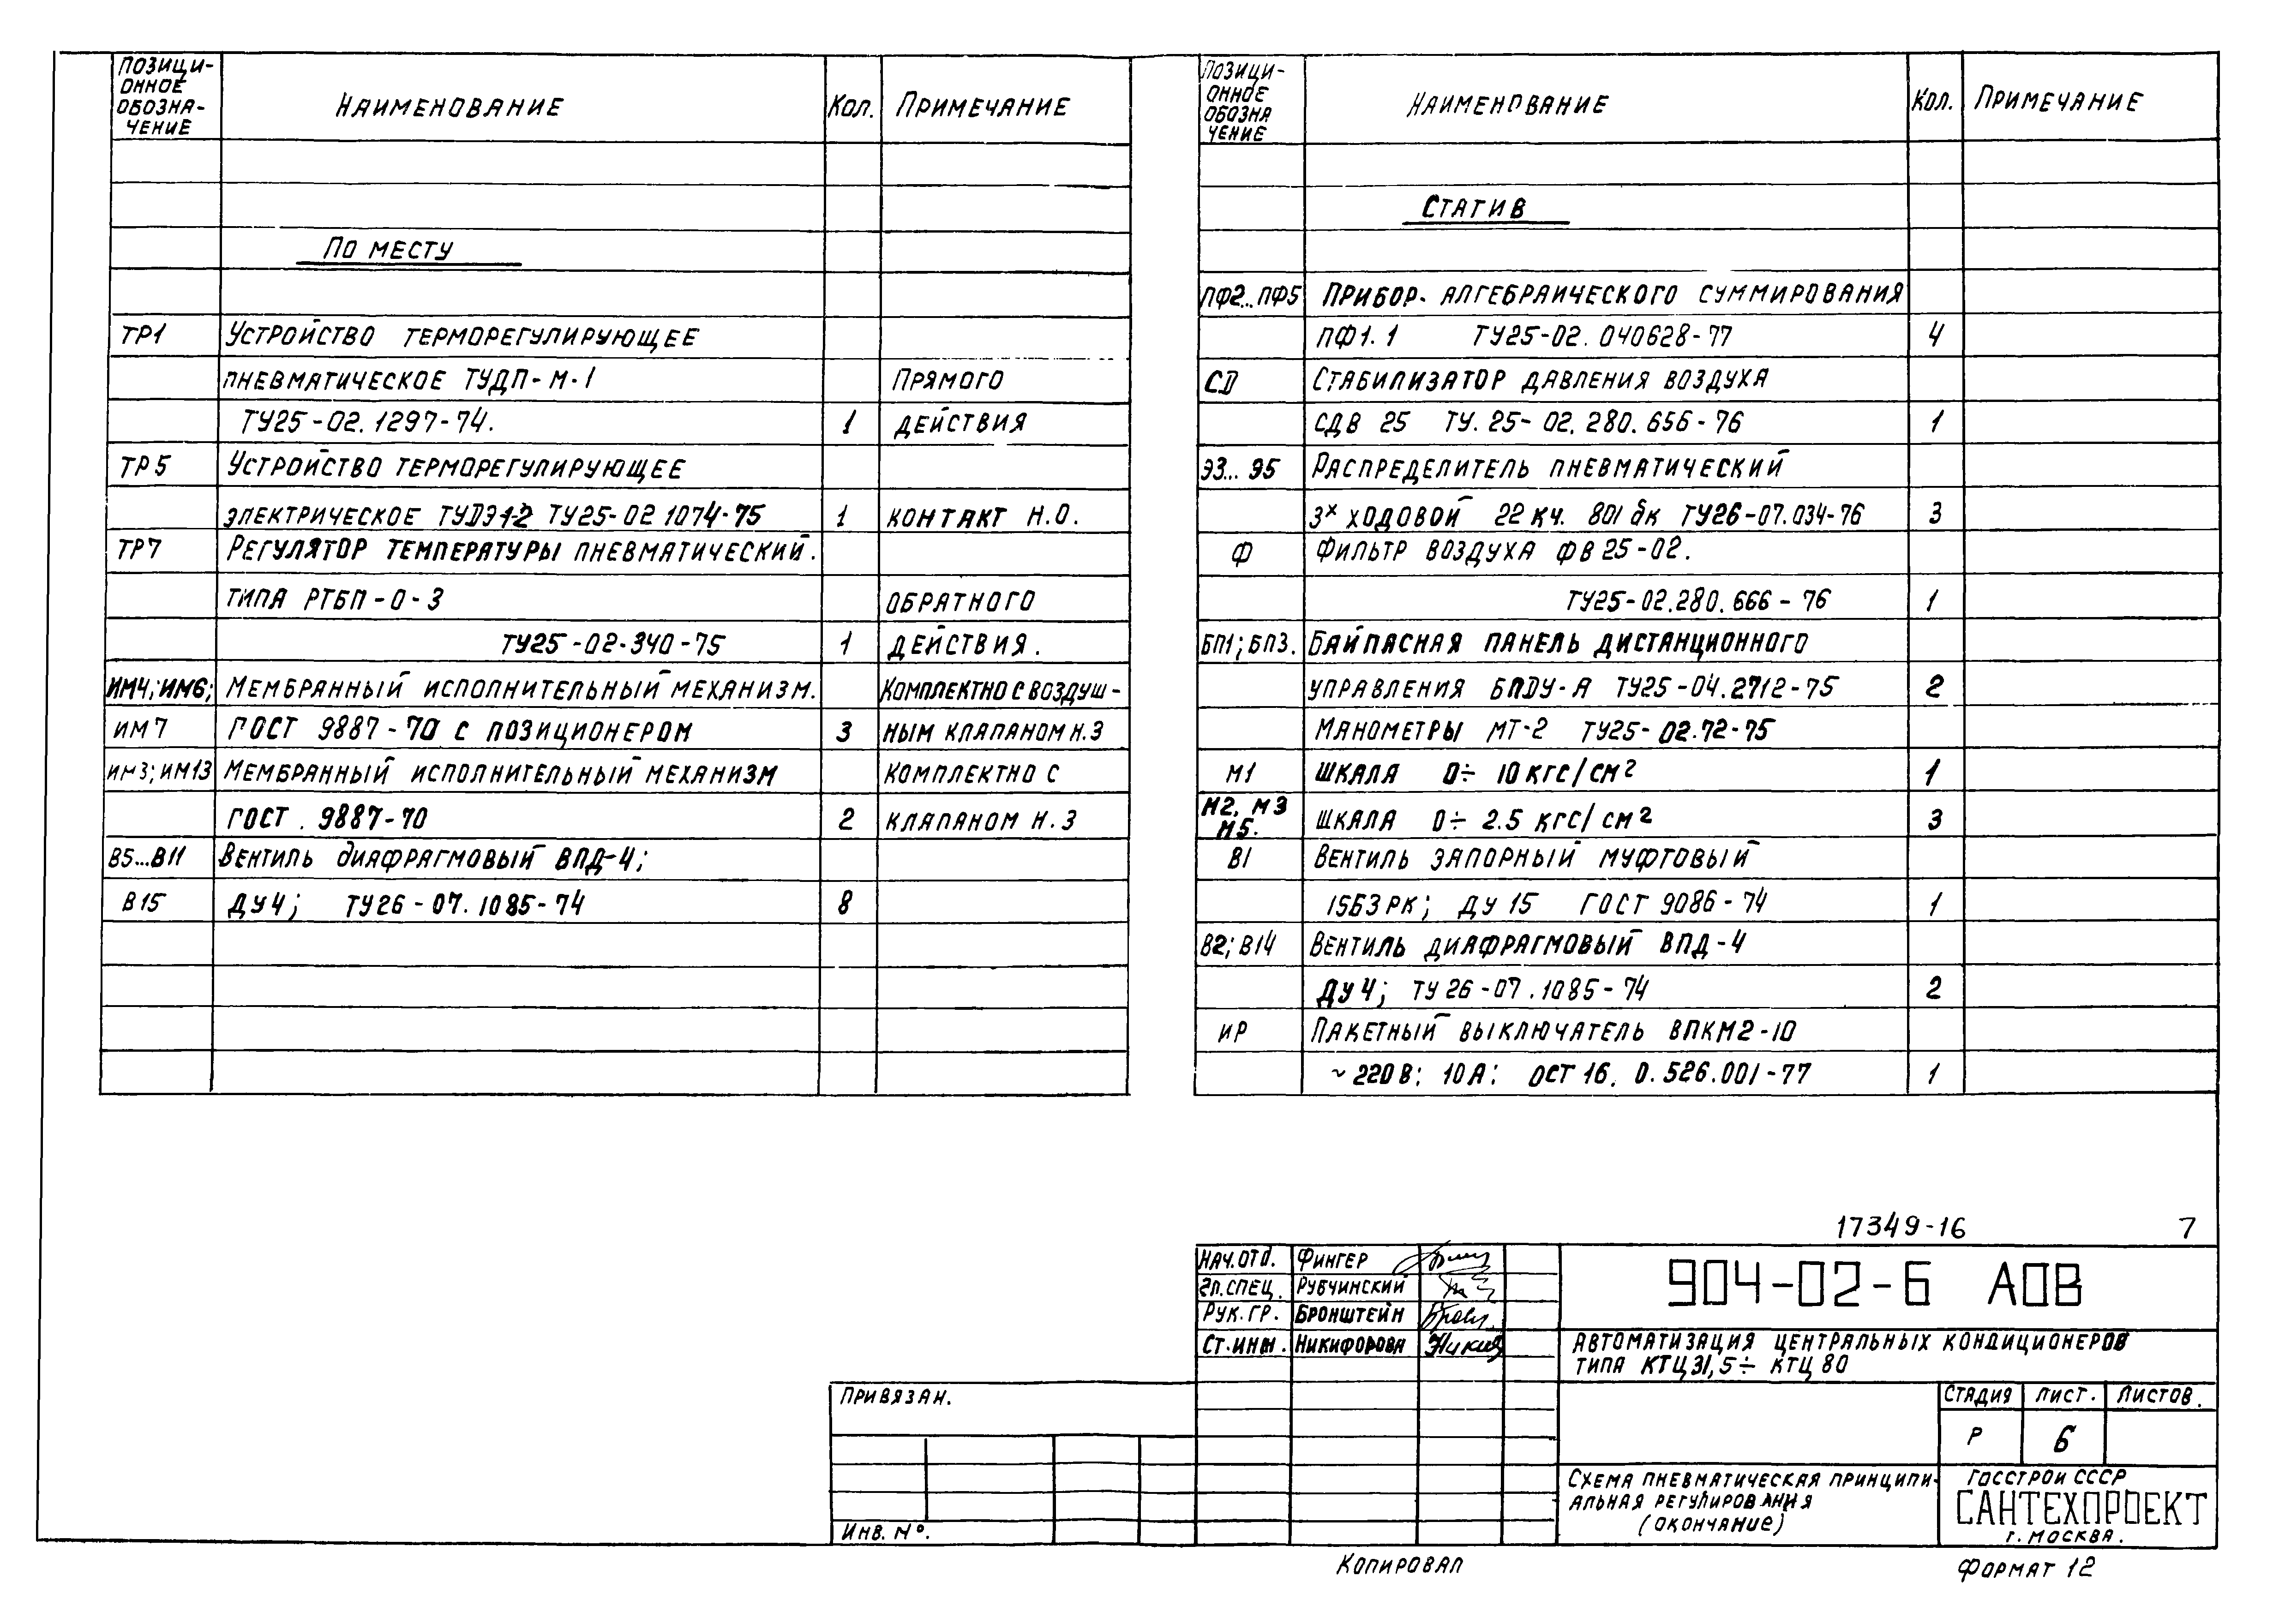 ПОЗИЦИ-
ОННОЕ
ОБОЗНА-
ЧЕНИЕ
НАИМЕНОВАНИЕ
КОЛ.
ПРИМЕЧАНИЕ
ПО МЕСТУ
ТР1 УСТРОЙСТВО ТЕРМОРЕГУЛИРУЮЩЕЕ
ПНЕВМАТИЧЕСКОЕ ТУДП-М-1 ПРЯМОГО
ТУ25-02.1297-74. 1 ДЕЙСТВИЯ
ТР5 УСТРОЙСТВО ТЕРМОРЕГУЛИРУЮЩЕЕ
ЭЛЕКТРИЧЕСКОЕ ТУДЭ1-2 ТУ25-02 1074-75 1 КОНТАКТ Н.О.
ТР7 РЕГУЛЯТОР ТЕМПЕРАТУРЫ ПНЕВМАТИЧЕСКИЙ.
ТИПА РТБП-0-3 ОБРАТНОГО
ТУ25-02-340-75 1 ДЕЙСТВИЯ.
ИМ4; ИМ6; МЕМБРАННЫЙ ИСПОЛНИТЕЛЬНЫЙ МЕХАНИЗМ. КОМПЛЕКТНО С ВОЗДУШ-
ИМ7 ГОСТ 9887-70 С ПОЗИЦИОНЕРОМ 3 НЫМ КЛАПАНОМ Н.З
ИМ3; ИМ13 МЕМБРАННЫЙ ИСПОЛНИТЕЛЬНЫЙ МЕХАНИЗМ КОМПЛЕКТНО С
ГОСТ. 9887-70 2 КЛАПАНОМ Н.З
В5...В11 ВЕНТИЛЬ ДИАФРАГМОВЫЙ ВПД-4;
В15 ДУ4; ТУ26-07.1085-74 8
ПОЗИЦИ-
ОННОЕ
ОБОЗНА
ЧЕНИЕ
НАИМЕНОВАНИЕ
КОЛ.
ПРИМЕЧАНИЕ
СТАТИВ
ПФ2...ПФ5 ПРИБОР. АЛГЕБРАИЧЕСКОГО СУММИРОВАНИЯ
ПФ1.1 ТУ25-02.040628-77 4
СД СТАБИЛИЗАТОР ДАВЛЕНИЯ ВОЗДУХА
СДВ 25 ТУ.25-02.280.656-76 1
Э3...Э5 РАСПРЕДЕЛИТЕЛЬ ПНЕВМАТИЧЕСКИЙ
3х ХОДОВОЙ 22 КЧ. 801 бк ТУ26-07.034-76 3
Ф ФИЛЬТР ВОЗДУХА ФВ25-02.
ТУ25-02.280.666-76 1
БП1; БП3. БАЙПАСНАЯ ПАНЕЛЬ ДИСТАНЦИОННОГО
УПРАВЛЕНИЯ БПДУ-А ТУ25-04.2712-75 2
МАНОМЕТРЫ МТ-2 ТУ25-02.72-75
М1 ШКАЛА 0÷10 КГС/СМ² 1
М2, М3
М5. ШКАЛА 0÷2.5 КГС/СМ² 3
В1 ВЕНТИЛЬ ЗАПОРНЫЙ МУФТОВЫЙ
15Б3РК; ДУ 15 ГОСТ 9086-74 1
В2; В14 ВЕНТИЛЬ ДИАФРАГМОВЫЙ ВПД-4
ДУ4; ТУ 26-07.1085-74 2
ИР ПАКЕТНЫЙ ВЫКЛЮЧАТЕЛЬ ВПКМ2-10
~220 В; 10 А; ОСТ 16. 0.526.001-77 1
17349-16 7
НАЧ.ОТД. ФИНГЕР
ГЛ.СПЕЦ. РУБЧИНСКИЙ
РУК.ГР. БРОНШТЕЙН
СТ.ИНЖ. НИКИФОРОВА
904-02-6 АОВ
АВТОМАТИЗАЦИЯ ЦЕНТРАЛЬНЫХ КОНДИЦИОНЕРОВ
ТИПА КТЦ31,5÷КТЦ80
ПРИВЯЗАН.
ИНВ. №.
СТАДИЯ ЛИСТ. ЛИСТОВ.
Р 6
СХЕМА ПНЕВМАТИЧЕСКАЯ ПРИНЦИПИ-
АЛЬНАЯ РЕГУЛИРОВАНИЯ
(ОКОНЧАНИЕ)
ГОССТРОЙ СССР
САНТЕХПРОЕКТ
Г. МОСКВА.
КОПИРОВАЛ
ФОРМАТ 12